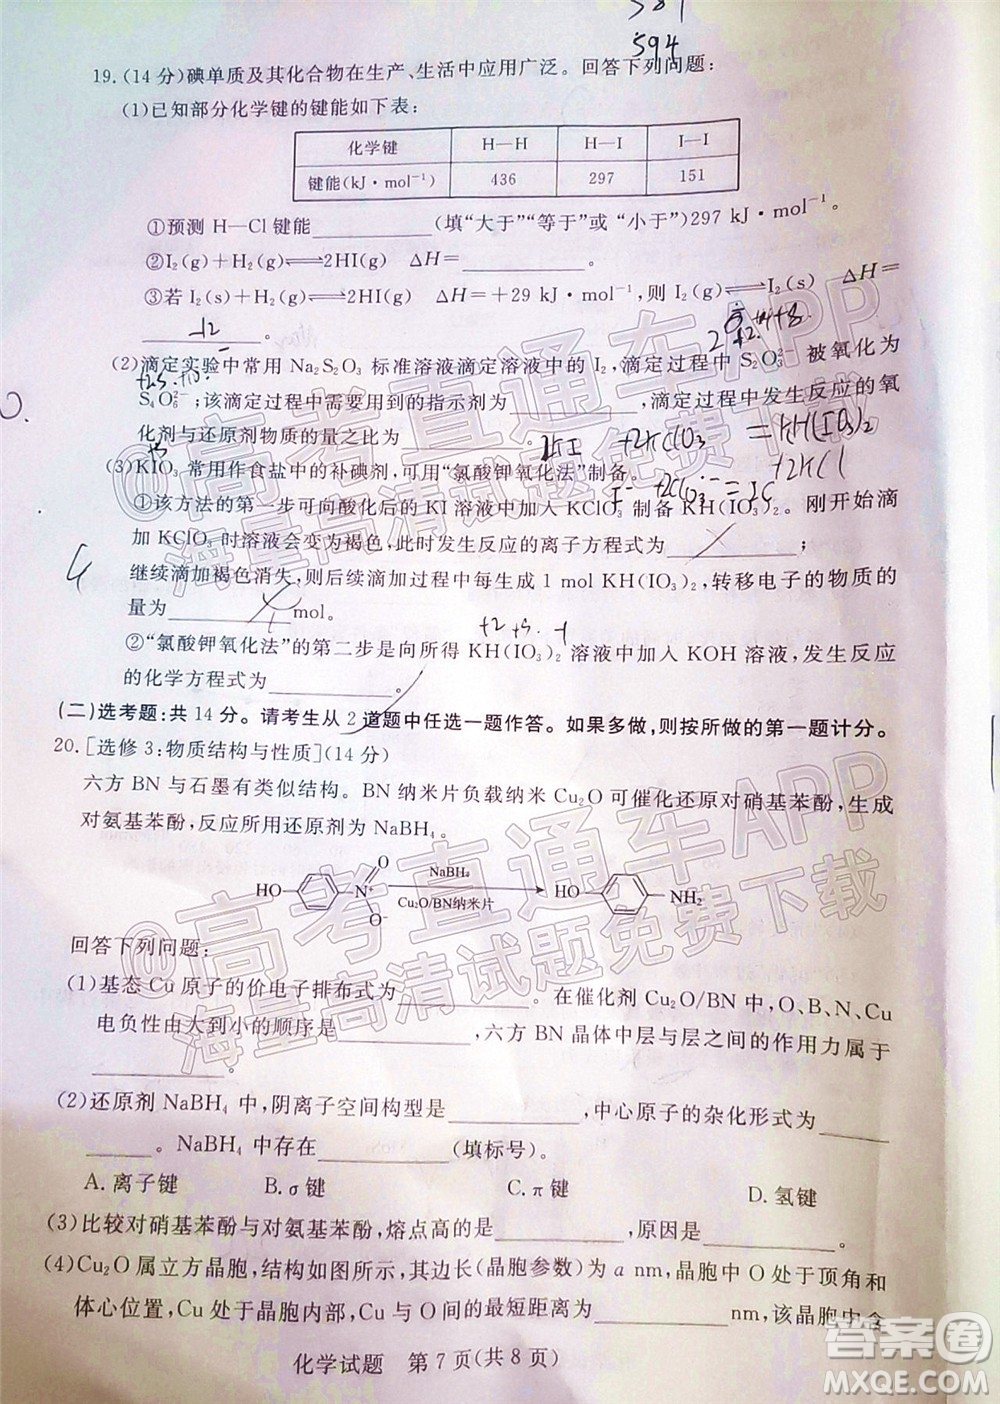 594
19.(14 分)碘单质及其化合物在生产、生活中应用广泛。回答下列问题:
(1)已知部分化学键的键能如下表:
化学键 H—H H—I I—I
键能(kJ·mol⁻¹) 436 297 151
①预测 H—Cl 键能________(填“大于”“等于”或“小于”)297 kJ·mol⁻¹。
②I₂(g)+H₂(g)⇌2HI(g) ΔH=________。
③若 I₂(s)+H₂(g)⇌2HI(g) ΔH=+29 kJ·mol⁻¹,则 I₂(g)⇌I₂(s) ΔH=
________。
(2)滴定实验中常用 Na₂S₂O₃ 标准溶液滴定溶液中的 I₂,滴定过程中 S₂O₃²⁻ 被氧化为
S₄O₆²⁻;该滴定过程中需要用到的指示剂为________,滴定过程中发生反应的氧
化剂与还原剂物质的量之比为________。
2KI +2KClO₃ =KH(IO₃)₂
+2KCl
(3)KIO₃ 常用作食盐中的补碘剂,可用“氯酸钾氧化法”制备。
①该方法的第一步可向酸化后的 KI 溶液中加入 KClO₃ 制备 KH(IO₃)₂。刚开始滴
加 KClO₃ 时溶液会变为褐色,此时发生反应的离子方程式为________;
继续滴加褐色消失,则后续滴加过程中每生成 1 mol KH(IO₃)₂,转移电子的物质的
量为________mol。
②“氯酸钾氧化法”的第二步是向所得 KH(IO₃)₂ 溶液中加入 KOH 溶液,发生反应
的化学方程式为________。
(二)选考题:共 14 分。请考生从 2 道题中任选一题作答。如果多做,则按所做的第一题计分。
20.[选修 3:物质结构与性质](14 分)
六方 BN 与石墨有类似结构。BN 纳米片负载纳米 Cu₂O 可催化还原对硝基苯酚,生成
对氨基苯酚,反应所用还原剂为 NaBH₄。
HO N⁺ O O⁻ NaBH₄ Cu₂O/BN纳米片 HO NH₂
回答下列问题:
(1)基态 Cu 原子的价电子排布式为________。在催化剂 Cu₂O/BN 中,O、B、N、Cu
电负性由大到小的顺序是________,六方 BN 晶体中层与层之间的作用力属于
________。
(2)还原剂 NaBH₄ 中,阴离子空间构型是________,中心原子的杂化形式为____
____。NaBH₄ 中存在________(填标号)。
A. 离子键 B. σ 键 C. π 键 D. 氢键
(3)比较对硝基苯酚与对氨基苯酚,熔点高的是________,原因是________。
(4)Cu₂O 属立方晶胞,结构如图所示,其边长(晶胞参数)为 a nm,晶胞中 O 处于顶角和
体心位置,Cu 处于晶胞内部,Cu 与 O 间的最短距离为________nm,该晶胞中含
化学试题 第 7 页(共 8 页)
@高考直通车APP
海量高清试题免费下载
@高考直通车APP
海量高清试题免费下载
答案圈
MXQE.COM